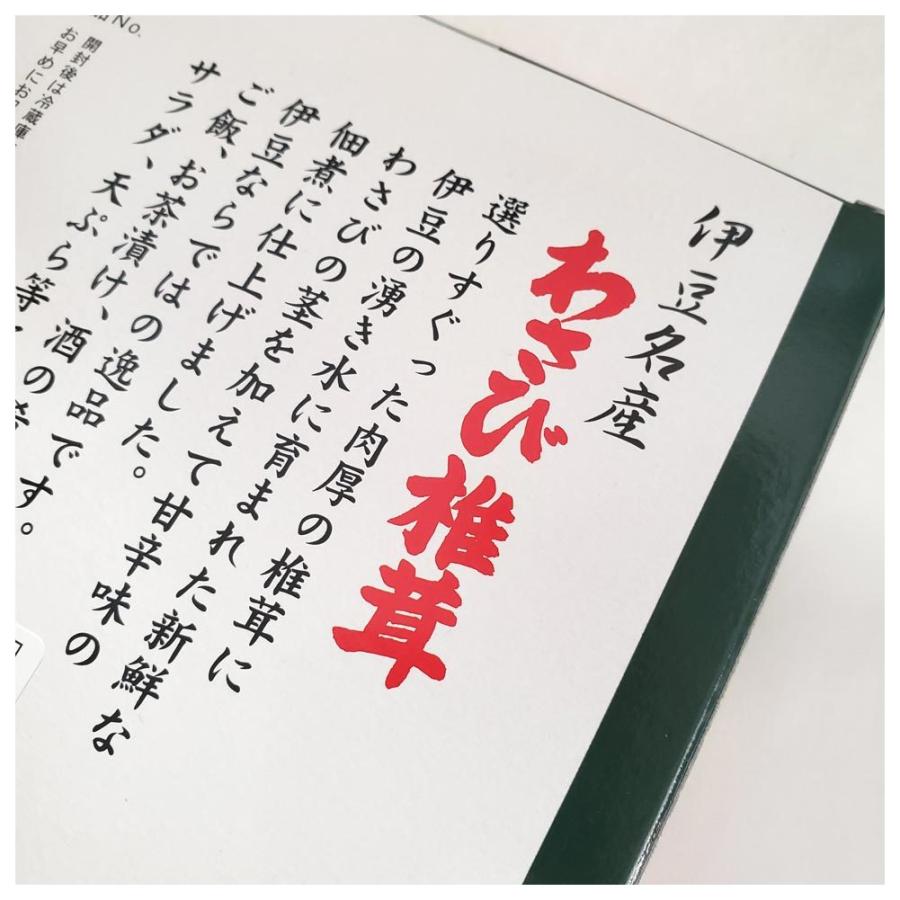 伊豆名産
わさび椎茸
選りすぐった肉厚の椎茸に
伊豆の湧き水に育まれた新鮮な
わさびの茎を加えて甘辛味の
佃煮に仕上げました。
伊豆ならではの逸品です。
ご飯、お茶漬け、酒の
サラダ、天ぷら等
No.
開封後は冷蔵庫
お早めにお